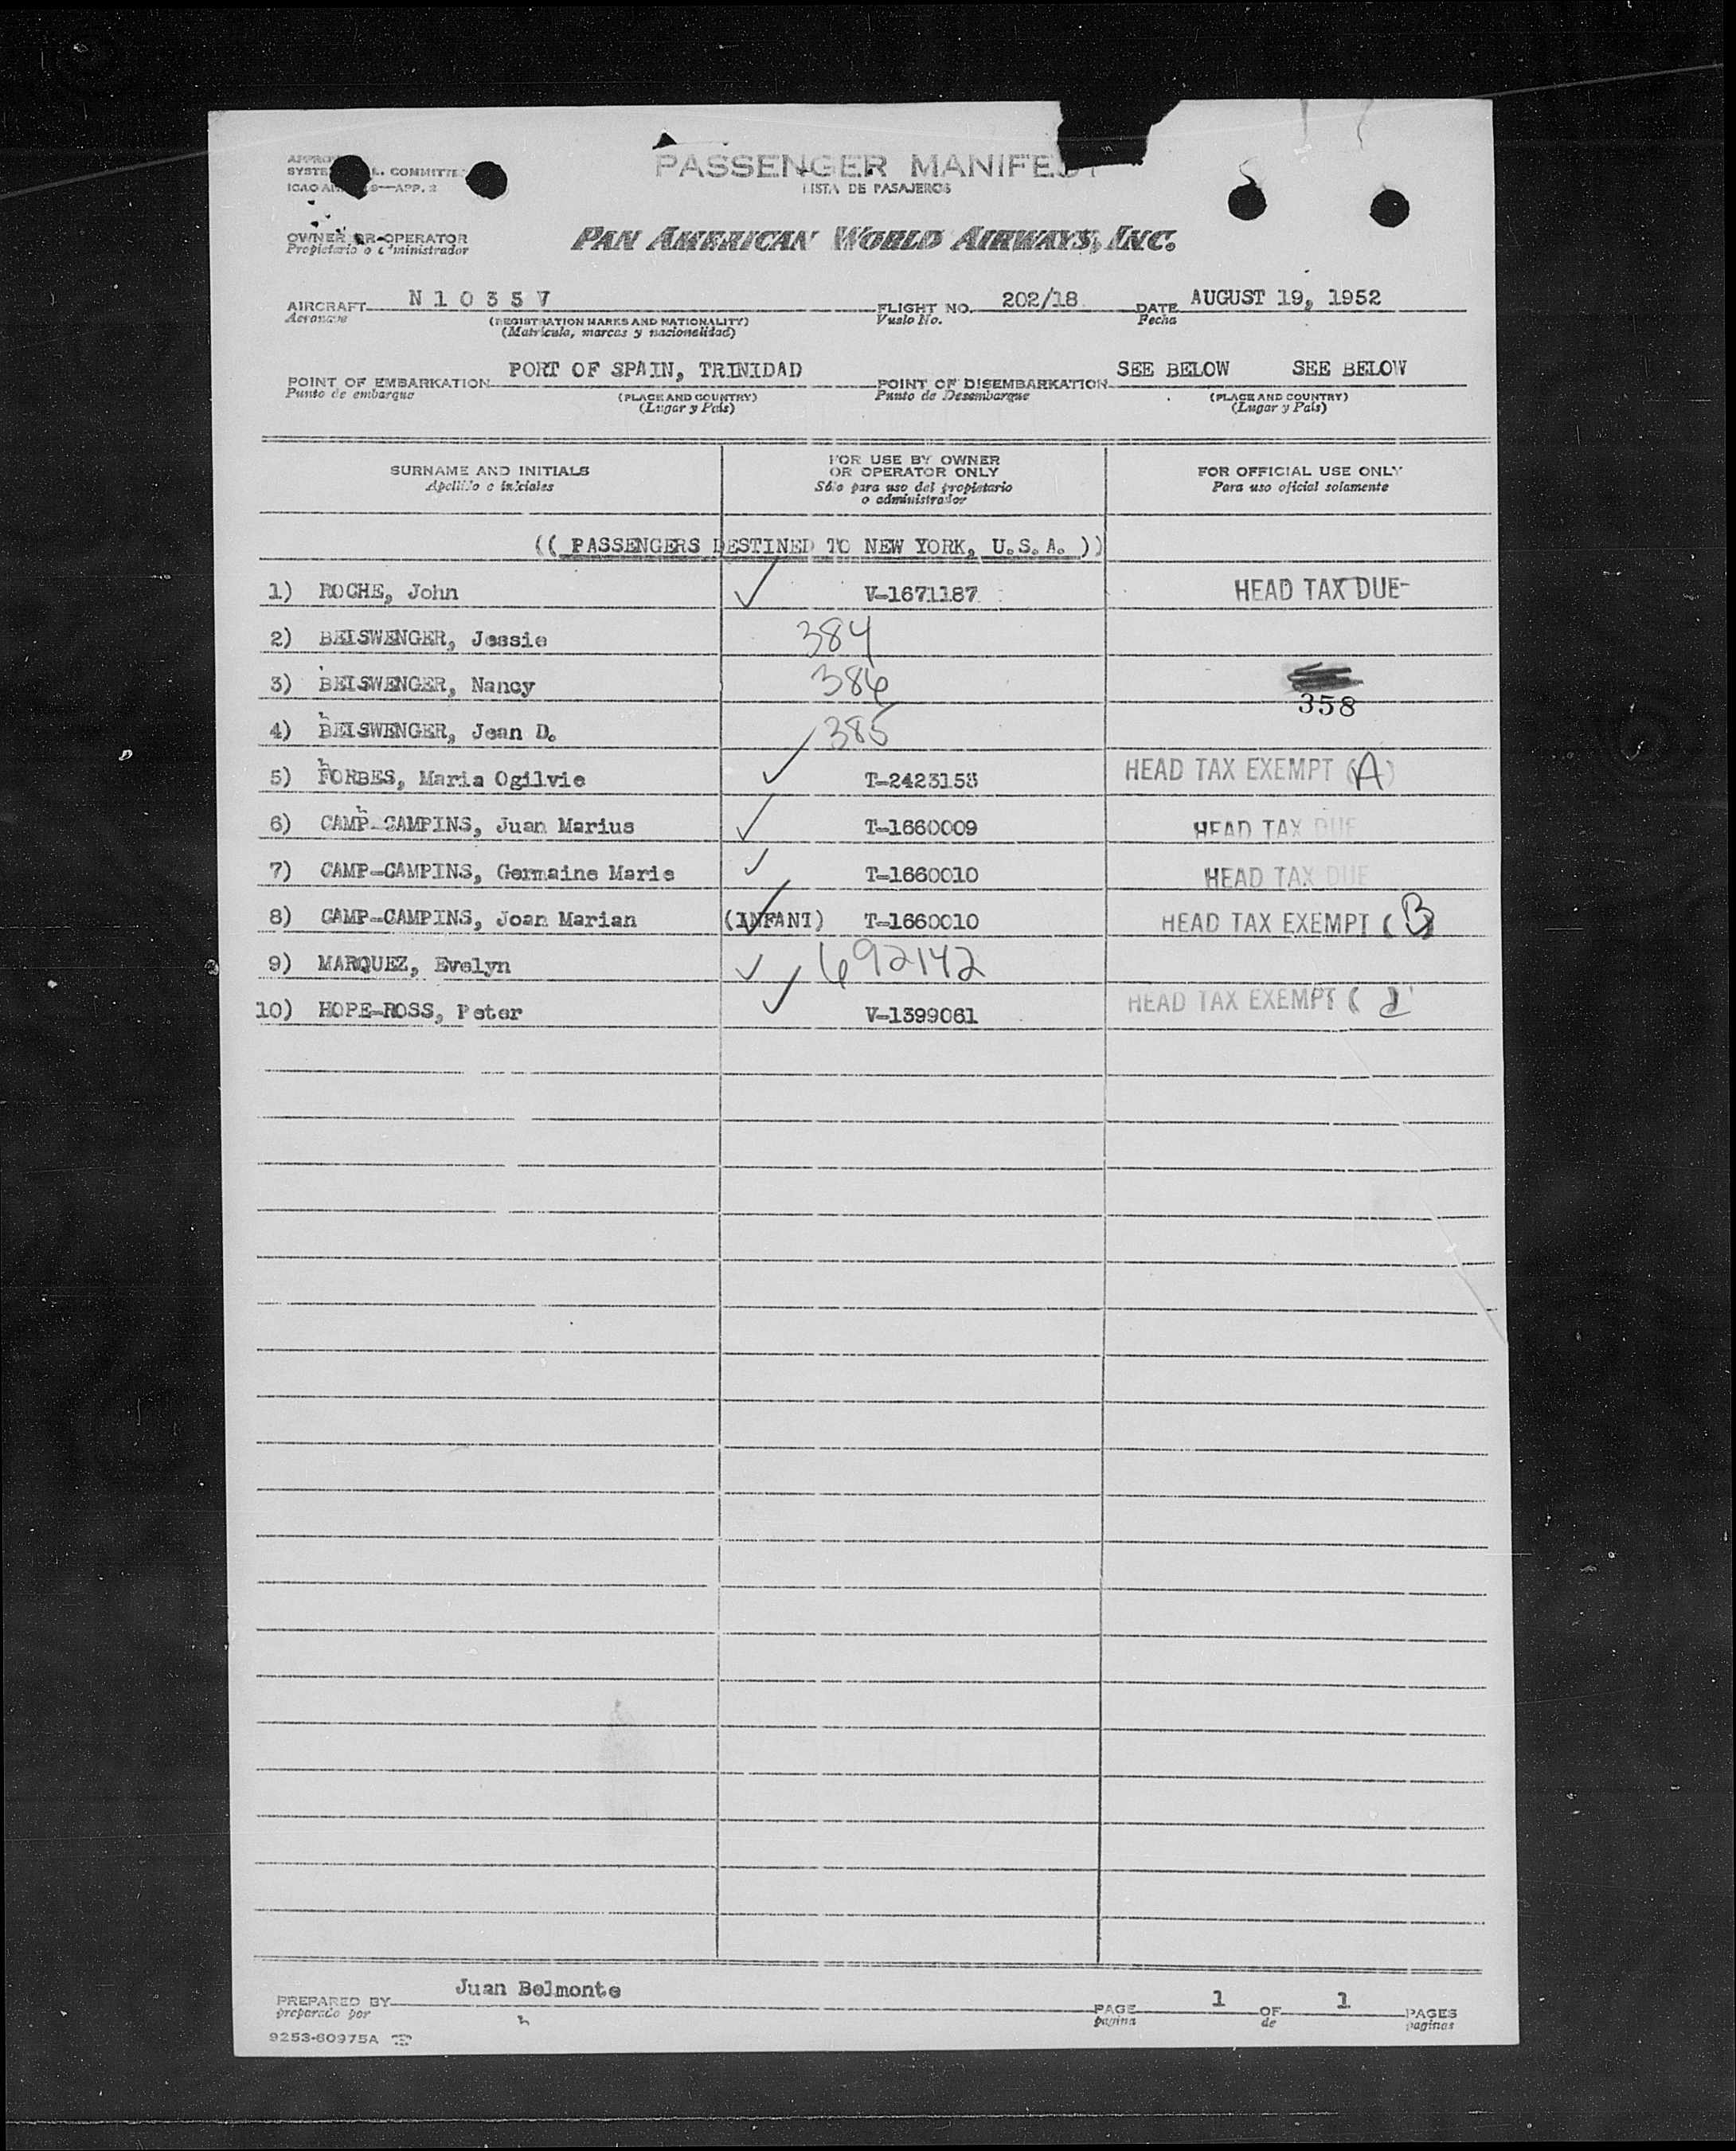 PASSENGER MANIFEST
LISTA DE PASAJEROS
L. COMMITTEE
APP. 2
OWNER OR OPERATOR
Propietario o administrador
PAN AMERICAN WORLD AIRWAYS, INC.
AIRCRAFT N 1 0 3 5 V FLIGHT NO. 202/18 DATE AUGUST 19, 1952
Aeronave (REGISTRATION MARKS AND NATIONALITY) Vuelo No. Fecha
(Matrícula, marcas y nacionalidad)
POINT OF EMBARKATION PORT OF SPAIN, TRINIDAD POINT OF DISEMBARKATION SEE BELOW SEE BELOW
Punto de embarque (PLACE AND COUNTRY) Punto de Desembarque (PLACE AND COUNTRY)
(Lugar y País) (Lugar y País)
SURNAME AND INITIALS FOR USE BY OWNER OR OPERATOR ONLY FOR OFFICIAL USE ONLY
Apellido e iniciales Sólo para uso del propietario o administrador Para uso oficial solamente
(( PASSENGERS DESTINED TO NEW YORK, U.S.A. ))
1) ROCHE, John V-1671187 HEAD TAX DUE
2) BEISWENGER, Jessie 384
3) BEISWENGER, Nancy 386
358
4) BEISWENGER, Jean D. 385
5) FORBES, Maria Ogilvie T-2423153 HEAD TAX EXEMPT (A)
6) CAMP-CAMPINS, Juan Marius T-1660009 HEAD TAX DUE
7) CAMP-CAMPINS, Germaine Marie T-1660010 HEAD TAX DUE
8) CAMP-CAMPINS, Joan Marian (INFANT) T-1660010 HEAD TAX EXEMPT (B)
9) MARQUEZ, Evelyn 692142
10) HOPE-ROSS, Peter V-1399061 HEAD TAX EXEMPT
PREPARED BY Juan Belmonte PAGE 1 OF 1 PAGES
preparado por pagina de paginas
9253-60975A